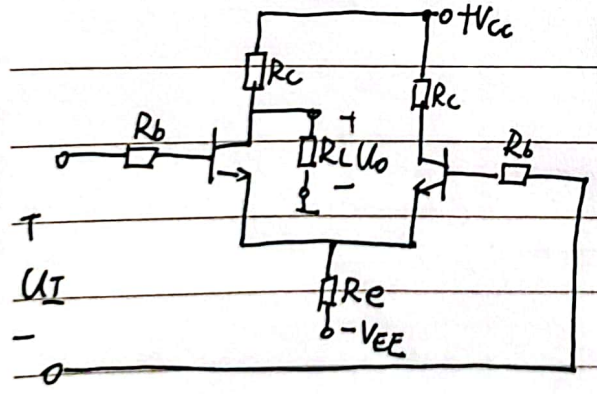 +Vcc
Rc
Rc
Rb
+
RL Uo
Rb
-
+
UI
Re
-
-VEE